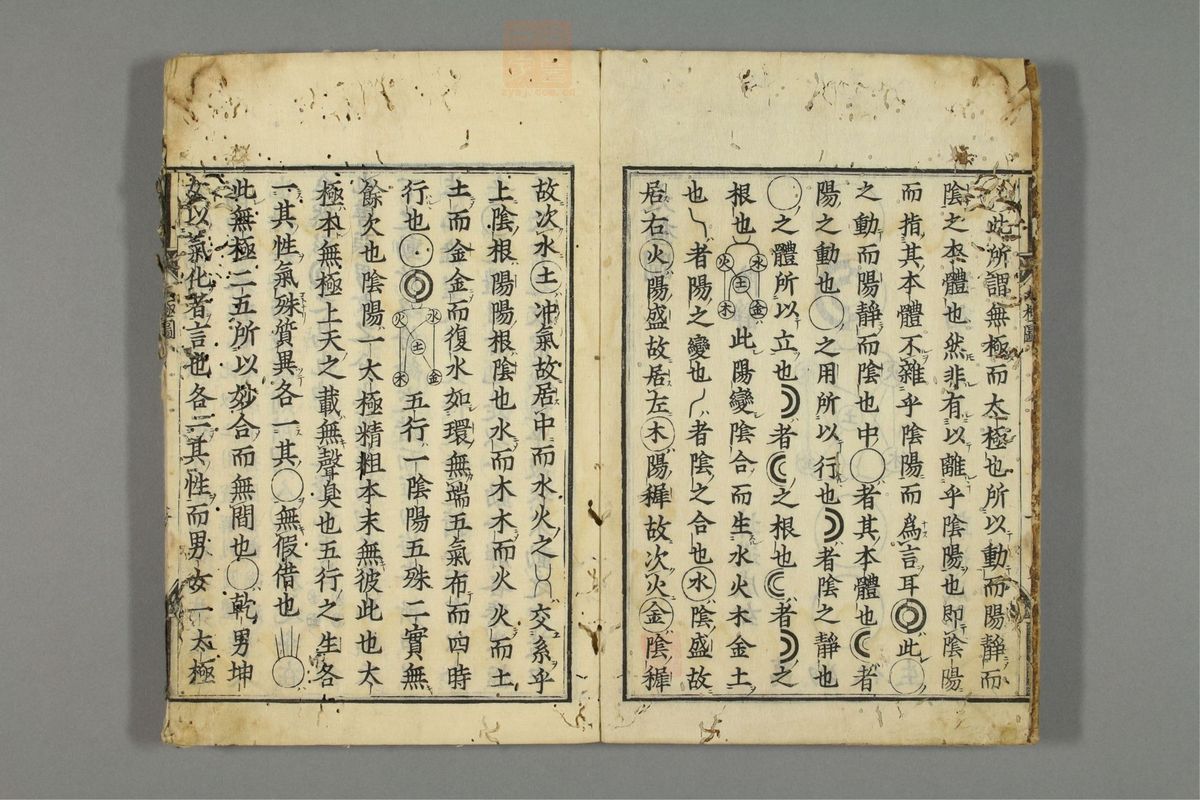 ○此所謂無極而太極也所以動而陽静而
陰之本體也然非有以離乎陰陽也即陰陽
而指其本體不雜乎陰陽而為言耳此○
之動而陽静而陰也中○者其本體也者
陽之動也○之用所以行也者陰之静也
○之體所以立也者之根也者之
根也水火土木金此陽變陰合而生水火木金土
也者陽之變也者陰之合也水陰盛故
居右火陽盛故居左木陽穉故次火金陰穉
故次水土冲氣故居中而水火之交系乎
上陰根陽陽根陰也水而木木而火火而土
土而金金而復水如環無端五氣布而四時
行也水火土木金五行一陰陽五殊二實無
餘欠也陰陽一太極精粗本末無彼此也太
極本無極上天之載無聲臭也五行之生各
一其性氣殊質異各一其○無假借也
此無極二五所以妙合而無間也○乾男坤
女以氣化者言也各一其性而男女一太極
極圖